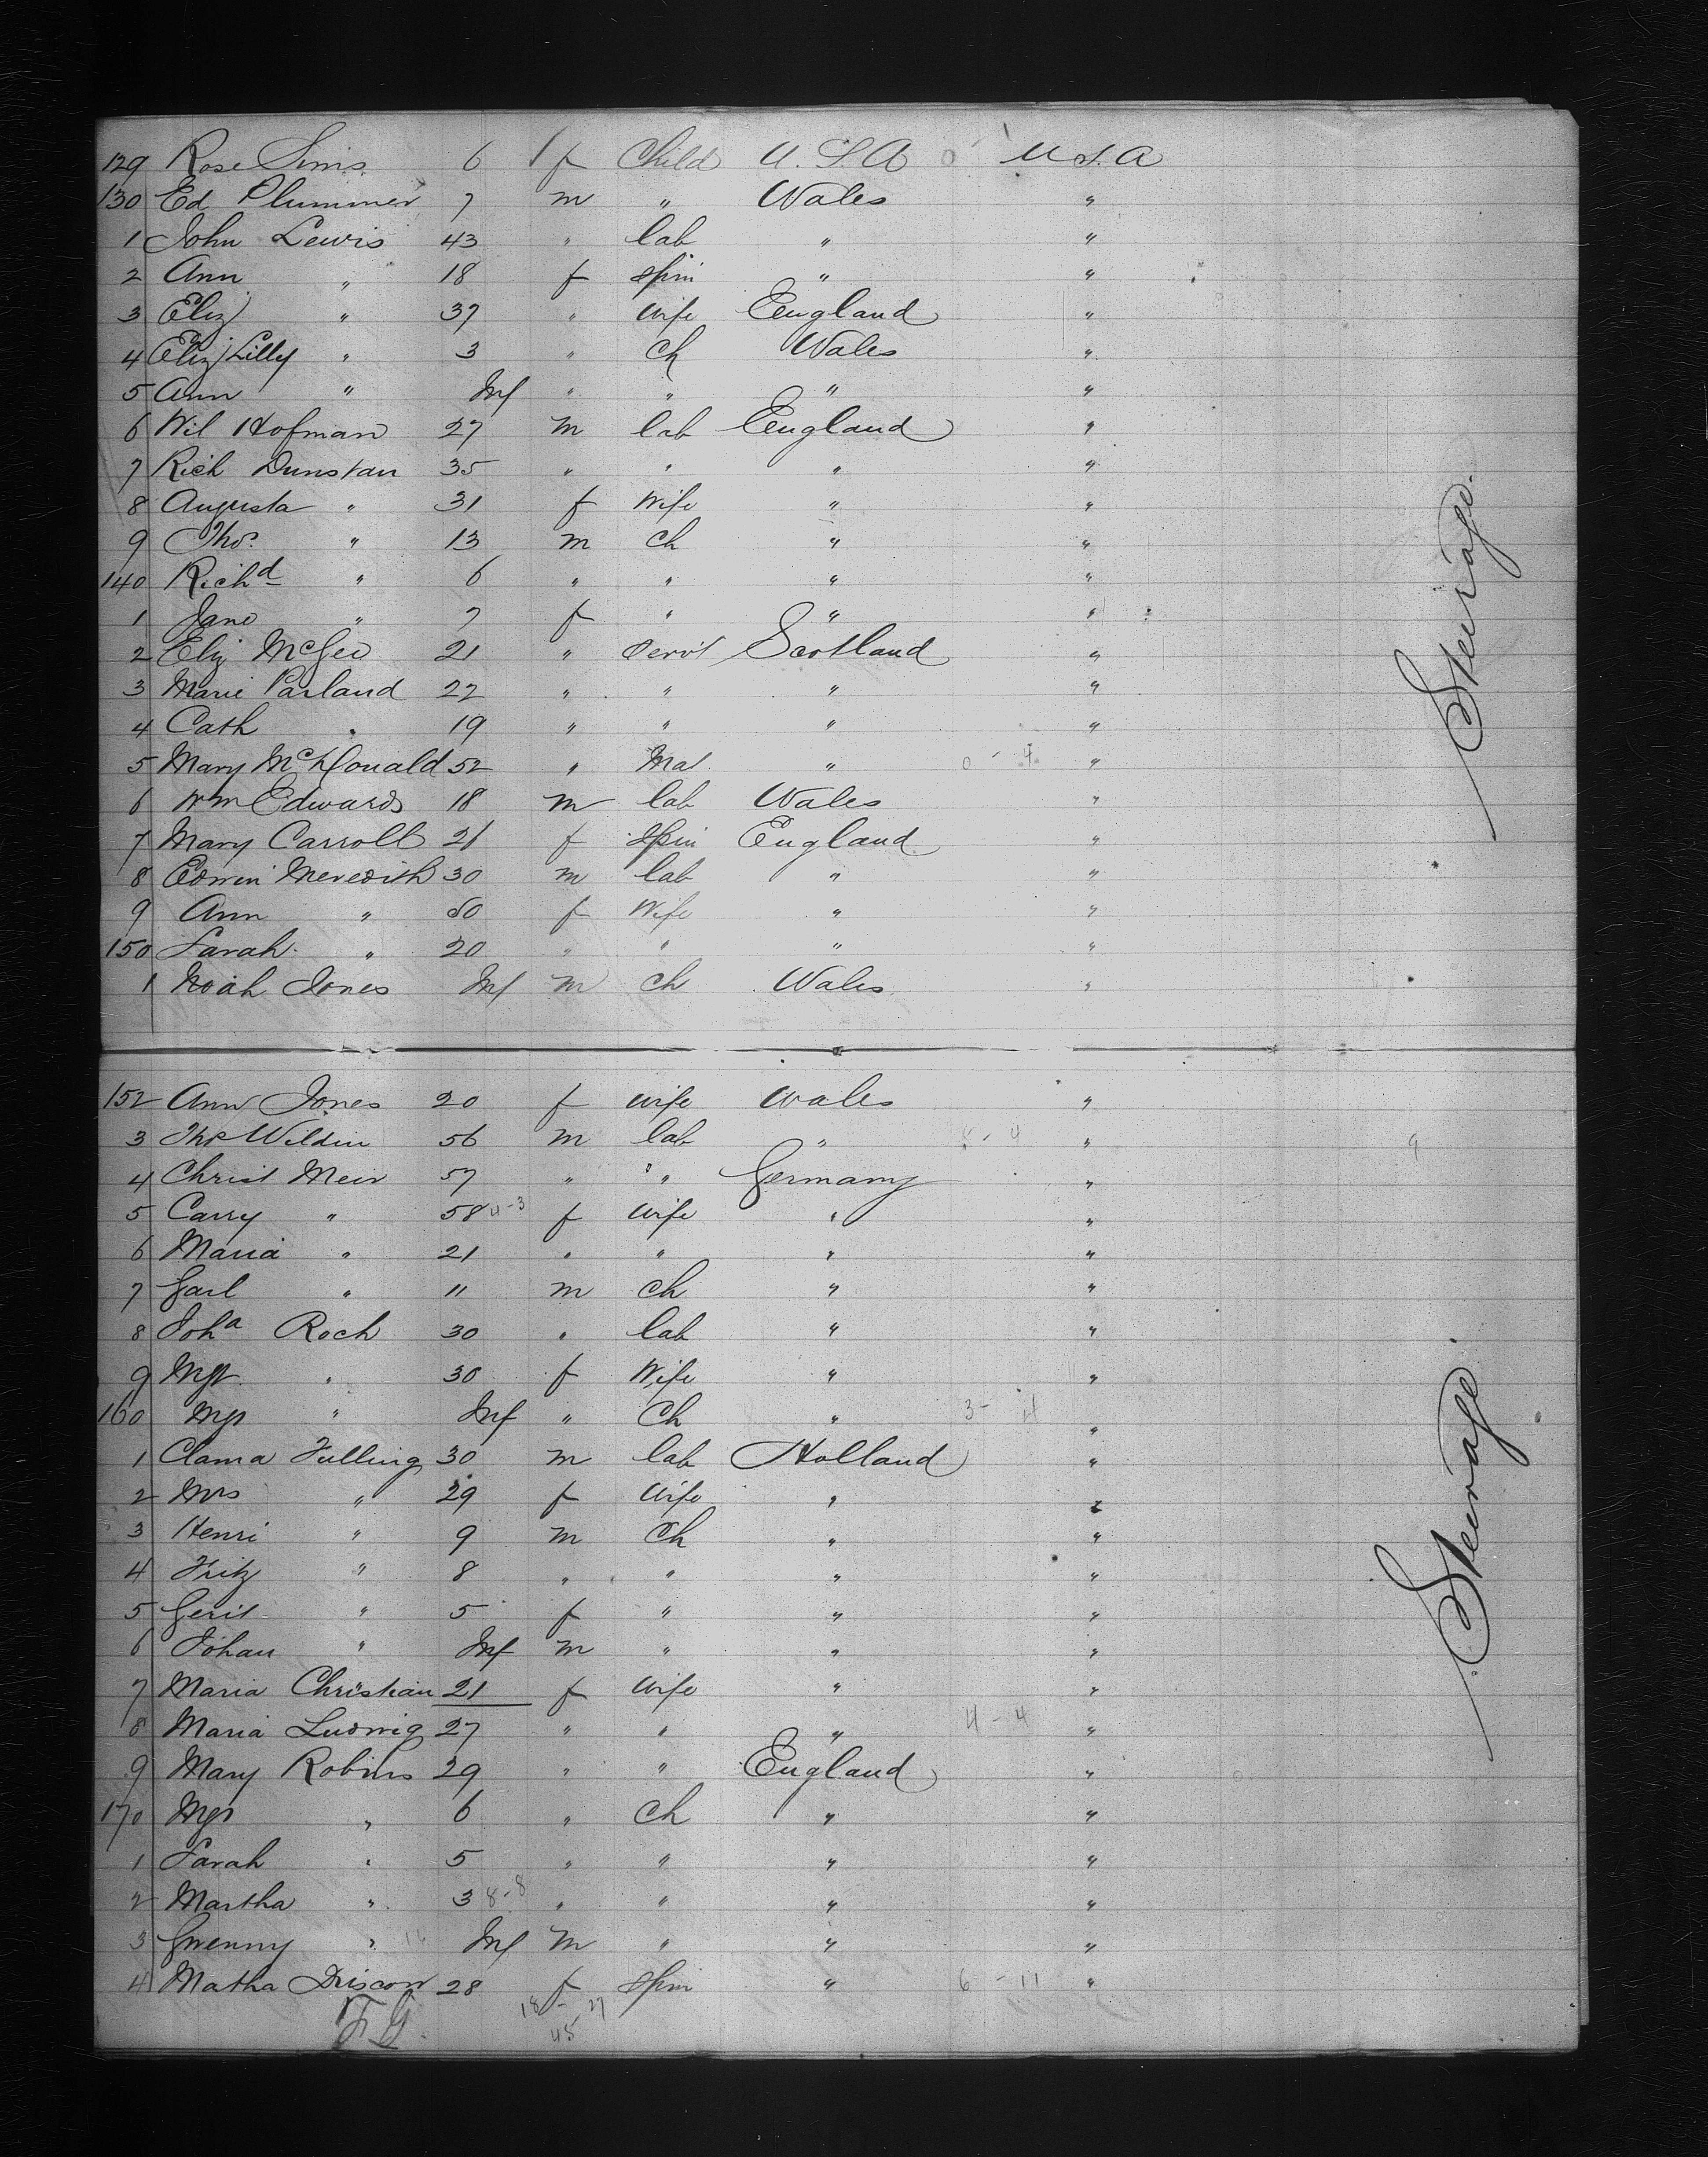 129 Rose Sims 6 f Child U.S.A U.S.A
130 Ed Plummer 7 m " Wales "
1 John Lewis 43 " lab " "
2 Ann " 18 f spin " "
3 Eliz " 37 " wife England "
4 Eliz Lilly " 3 " ch Wales "
5 Ann " Inf " " " "
6 Wil Hofman 27 m lab England "
7 Rich Dunstan 35 " " " "
8 Augusta " 31 f Wife " "
9 Thos. " 13 m ch " "
140 Richd " 6 " " " "
1 Jane " 7 f " " "
2 Eliz McGee 21 " Servt Scotland "
3 Marie Parland 22 " " " "
4 Cath " 19 " " " "
5 Mary McDonald 52 " Mat " 0 - 4 "
6 Wm Edwards 18 m lab Wales "
7 Mary Carroll 21 f spin England "
8 Edwin Meredith 30 m lab " "
9 Ann " 50 f Wife " "
150 Sarah " 20 " " " "
1 Noah Jones Inf m ch Wales "
Steerage.
152 Ann Jones 20 f wife Wales "
3 Thos Wildin 56 m lab " 8 - 4 " 9
4 Christ Meir 57 " " Germany "
5 Carry " 58 4-3 f wife " "
6 Maria " 21 " " " "
7 Garl " 11 m ch " "
8 Joha Roch 30 " lab " "
9 Mgt " 30 f Wife " "
160 Mgt " Inf " Ch " 3 - 4 "
1 Clama Fulling 30 m lab Holland "
2 Mrs " 29 f wife " "
3 Henri " 9 m Ch " "
4 Fritz " 8 " " " "
5 Gerit " 5 f " " "
6 Johan " Inf m " " "
7 Maria Christian 21 f wife " "
8 Maria Ludwig 27 " " " 4 - 4 "
9 Mary Robins 29 " " England "
170 Mgt " 6 " Ch " "
1 Sarah " 5 " " " "
2 Martha " 3 8-8 " " " "
3 Gwenny " 16 Inf m " " "
4 Matha 28 f spin " 6 - 11 "
F.G. 18 - 27
45
Steerage